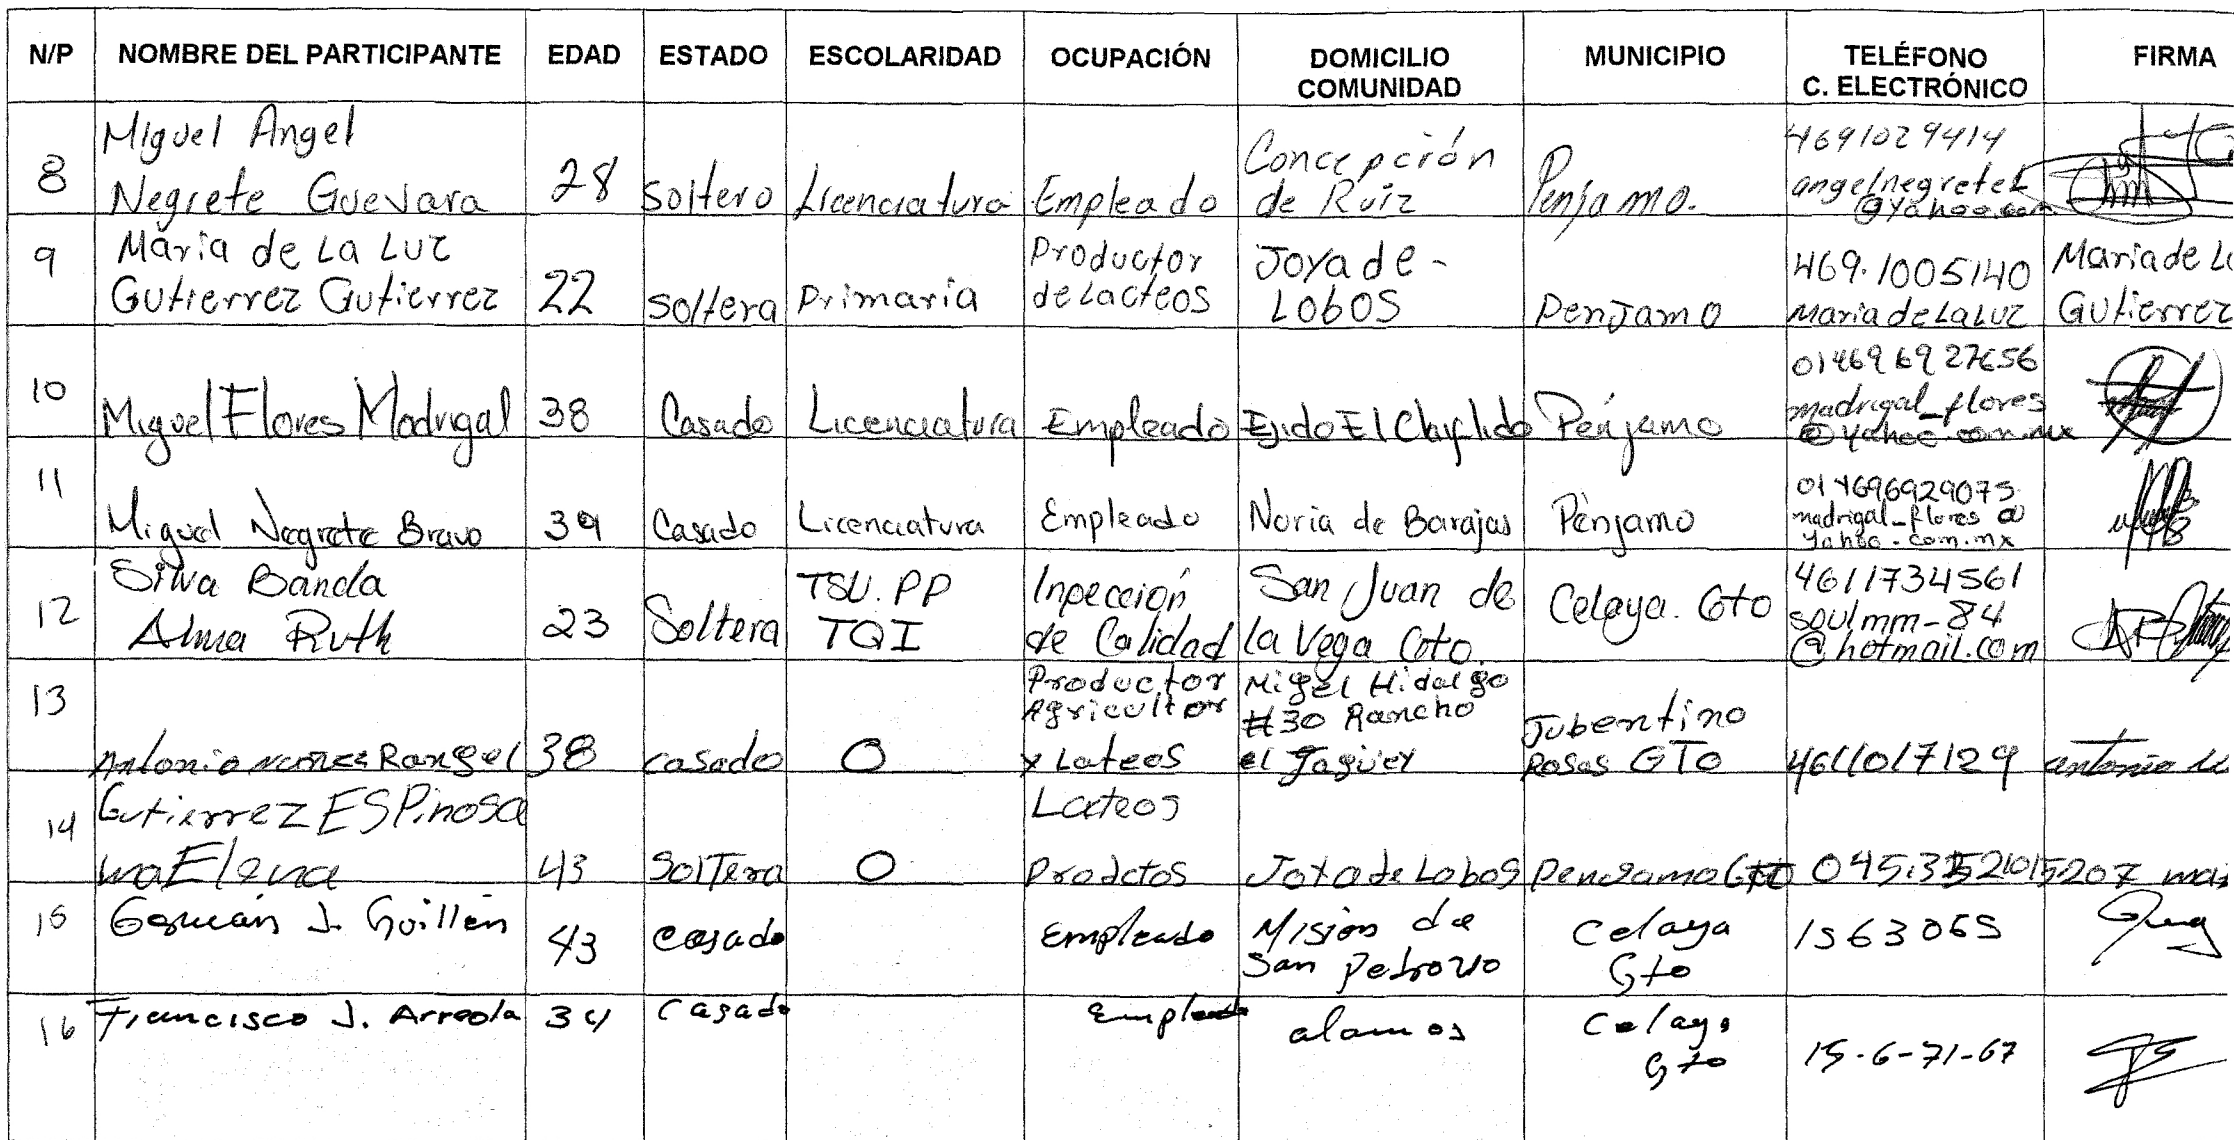 N/P NOMBRE DEL PARTICIPANTE EDAD ESTADO ESCOLARIDAD OCUPACIÓN DOMICILIO COMUNIDAD MUNICIPIO TELÉFONO C. ELECTRÓNICO FIRMA
8
Miguel Angel
Negrete Guevara
28
Soltero
Licenciatura
Empleado
Concepción
de Ruiz
Penjamo.
4691029414
angelnegrete
@yahoo.com
9
Maria de La Luz
Gutierrez Gutierrez
22
Soltera
Primaria
Productor
de Lacteos
Joya de -
Lobos
Penjamo
469.1005140
Maria de La Luz
Maria de L
Gutierrez
10
Miguel Flores Madrigal
38
Casado
Licenciatura
Empleado
Ejido El
Penjamo
014696927656
madrigal_flores
@yahoo.com.mx
11
Miguel Negrete Bravo
39
Casado
Licenciatura
Empleado
Noria de Barajas
Penjamo
014696929075
madrigal_flores@
yahoo.com.mx
12
Silva Banda
Alma Ruth
23
Soltera
TSU. PP
TQI
Inpección
de Calidad
San Juan de
la Vega Gto.
Celaya. Gto
4611734561
soulmm-84
@hotmail.com
13
Antonio Rangel
38
casado
0
Productor
Agricultor
y Lateos
Migel Hidalgo
#30 Rancho
el Jagüey
Jubentino
Rosas GTO
4611017129
antonio
14
Gutierrez ESPinosa
ma Elena
43
SolTera
0
Lateos
Prodctos
Joya de Lobos
Penjamo Gto
15
German J. Guillen
43
Casado
Empleado
Mision de
San Pedro 210
Celaya
Gto
1563065
16
Francisco J. Arreola
34
Casado
Empleado
alamos
Celaya
Gto
15-6-71-67